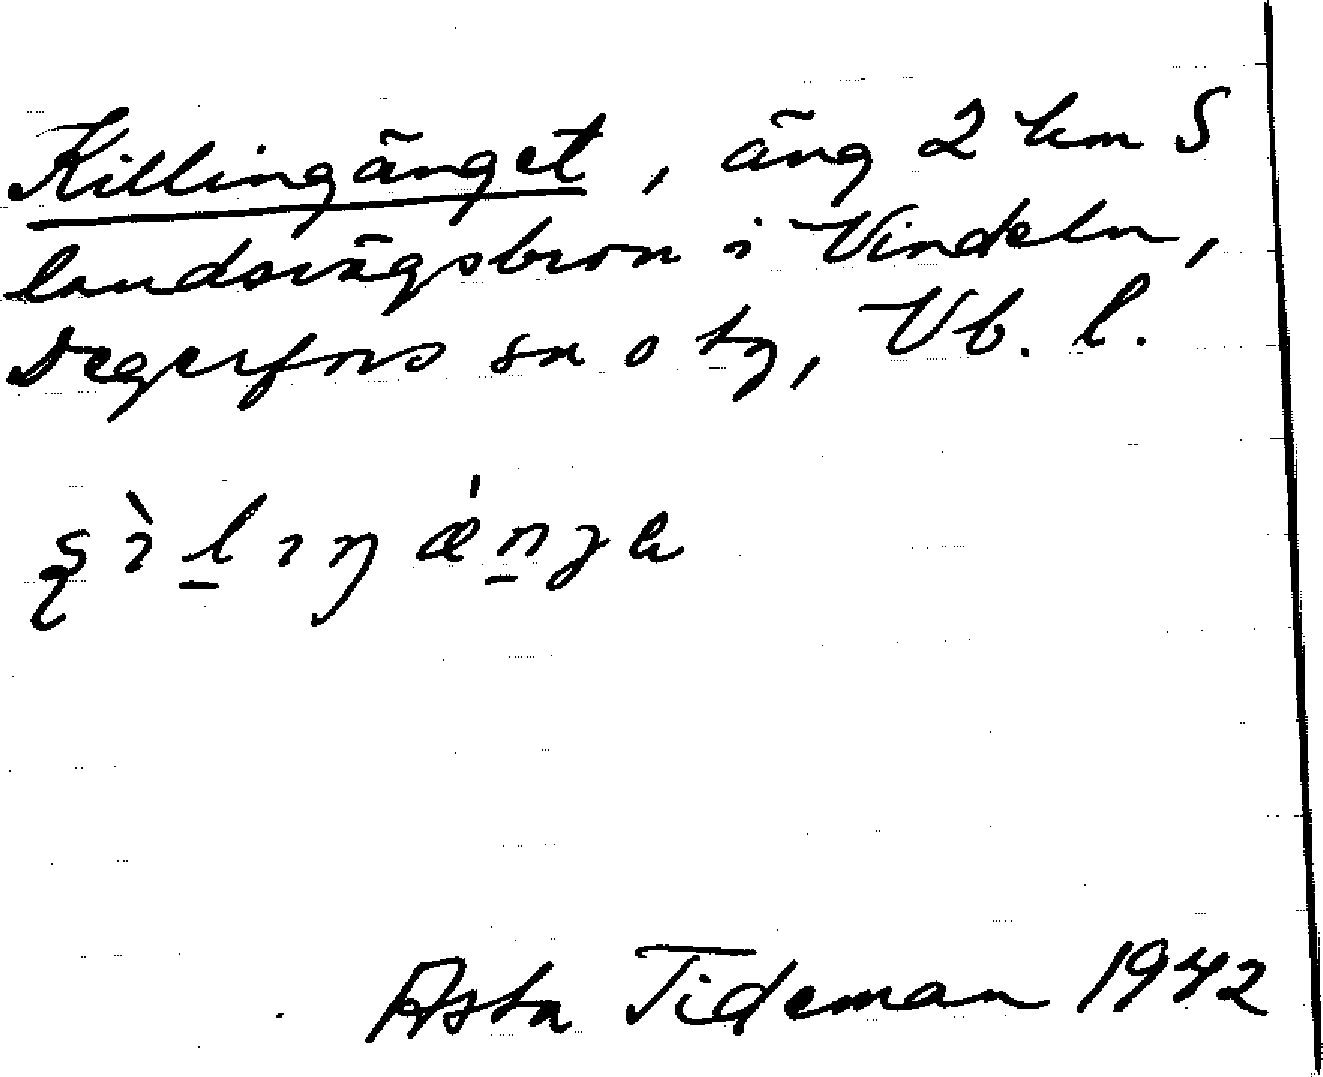 Killingänget, äng 2 km S
landsvägsbron i Vindeln,
Degerfors sn o tg, Vb. l.
Asta Tideman 1942